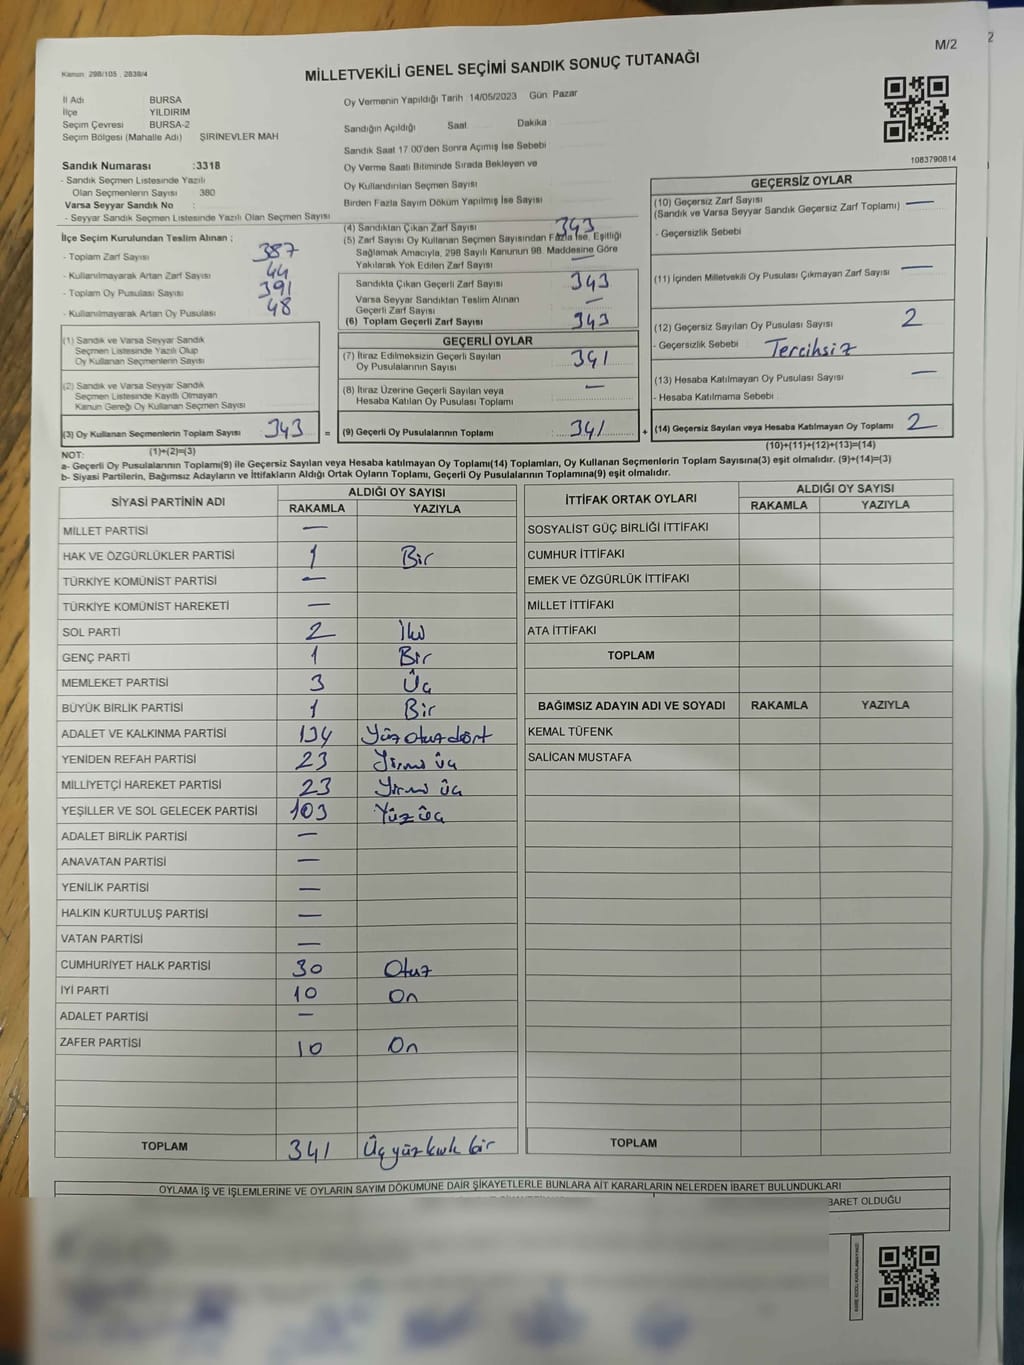 M/2
Kanun: 298/105 , 2839/4
MİLLETVEKİLİ GENEL SEÇİMİ SANDIK SONUÇ TUTANAĞI
İl Adı BURSA
İlçe YILDIRIM
Seçim Çevresi BURSA-2
Seçim Bölgesi (Mahalle Adı) ŞİRİNEVLER MAH
Sandık Numarası :3318
- Sandık Seçmen Listesinde Yazılı
Olan Seçmenlerin Sayısı 380
Varsa Seyyar Sandık No :
- Seyyar Sandık Seçmen Listesinde Yazılı Olan Seçmen Sayısı
İlçe Seçim Kurulundan Teslim Alınan ;
- Toplam Zarf Sayısı 387
- Kullanılmayarak Artan Zarf Sayısı 44
- Toplam Oy Pusulası Sayısı 391
- Kullanılmayarak Artan Oy Pusulası 48
(1) Sandık ve Varsa Seyyar Sandık
Seçmen Listesinde Yazılı Olup
Oy Kullanan Seçmenlerin Sayısı
(2) Sandık ve Varsa Seyyar Sandık
Seçmen Listesinde Kayıtlı Olmayan
Kanun Gereği Oy Kullanan Seçmen Sayısı
(3) Oy Kullanan Seçmenlerin Toplam Sayısı 343 =
Oy Vermenin Yapıldığı Tarih 14/05/2023 Gün Pazar
Sandığın Açıldığı Saat Dakika
Sandık Saat 17.00'den Sonra Açımış İse Sebebi
Oy Verme Saati Bitiminde Sırada Bekleyen ve
Oy Kullandırılan Seçmen Sayısı
Birden Fazla Sayım Döküm Yapılmış İse Sayısı
(4) Sandıktan Çıkan Zarf Sayısı 343
(5) Zarf Sayısı Oy Kullanan Seçmen Sayısından Fazla İse, Eşitliği
Sağlamak Amacıyla, 298 Sayılı Kanunun 98. Maddesine Göre
Yakılarak Yok Edilen Zarf Sayısı —
Sandıkta Çıkan Geçerli Zarf Sayısı 343
Varsa Seyyar Sandıktan Teslim Alınan
Geçerli Zarf Sayısı —
(6) Toplam Geçerli Zarf Sayısı 343
GEÇERLİ OYLAR
(7) İtiraz Edilmeksizin Geçerli Sayılan
Oy Pusulalarının Sayısı 341
(8) İtiraz Üzerine Geçerli Sayılan veya
Hesaba Katılan Oy Pusulası Toplamı —
(9) Geçerli Oy Pusulalarının Toplamı 341 +
1083790814
GEÇERSİZ OYLAR
(10) Geçersiz Zarf Sayısı
(Sandık ve Varsa Seyyar Sandık Geçersiz Zarf Toplamı) —
- Geçersizlik Sebebi
(11) İçinden Milletvekili Oy Pusulası Çıkmayan Zarf Sayısı —
(12) Geçersiz Sayılan Oy Pusulası Sayısı 2
- Geçersizlik Sebebi Tercihsiz
(13) Hesaba Katılmayan Oy Pusulası Sayısı —
- Hesaba Katılmama Sebebi
(14) Geçersiz Sayılan veya Hesaba Katılmayan Oy Toplamı 2
NOT: (1)+(2)=(3) (10)+(11)+(12)+(13)=(14)
a- Geçerli Oy Pusulalarının Toplamı(9) ile Geçersiz Sayılan veya Hesaba katılmayan Oy Toplamı(14) Toplamları, Oy Kullanan Seçmenlerin Toplam Sayısına(3) eşit olmalıdır. (9)+(14)=(3)
b- Siyasi Partilerin, Bağımsız Adayların ve İttifakların Aldığı Ortak Oyların Toplamı, Geçerli Oy Pusulalarının Toplamına(9) eşit olmalıdır.
SİYASİ PARTİNİN ADI ALDIĞI OY SAYISI
RAKAMLA YAZIYLA
MİLLET PARTİSİ —
HAK VE ÖZGÜRLÜKLER PARTİSİ 1 Bir
TÜRKİYE KOMÜNİST PARTİSİ —
TÜRKİYE KOMÜNİST HAREKETİ —
SOL PARTİ 2 İki
GENÇ PARTİ 1 Bir
MEMLEKET PARTİSİ 3 Üç
BÜYÜK BİRLİK PARTİSİ 1 Bir
ADALET VE KALKINMA PARTİSİ 134 Yüzotuzdört
YENİDEN REFAH PARTİSİ 23 Yirmi üç
MİLLİYETÇİ HAREKET PARTİSİ 23 Yirmi üç
YEŞİLLER VE SOL GELECEK PARTİSİ 103 Yüz üç
ADALET BİRLİK PARTİSİ —
ANAVATAN PARTİSİ —
YENİLİK PARTİSİ —
HALKIN KURTULUŞ PARTİSİ —
VATAN PARTİSİ —
CUMHURİYET HALK PARTİSİ 30 Otuz
İYİ PARTİ 10 On
ADALET PARTİSİ —
ZAFER PARTİSİ 10 On
TOPLAM 341 Üçyüz kırk bir
İTTİFAK ORTAK OYLARI ALDIĞI OY SAYISI
RAKAMLA YAZIYLA
SOSYALİST GÜÇ BİRLİĞİ İTTİFAKI
CUMHUR İTTİFAKI
EMEK VE ÖZGÜRLÜK İTTİFAKI
MİLLET İTTİFAKI
ATA İTTİFAKI
TOPLAM
BAĞIMSIZ ADAYIN ADI VE SOYADI RAKAMLA YAZIYLA
KEMAL TÜFENK
SALİCAN MUSTAFA
TOPLAM
OYLAMA İŞ VE İŞLEMLERİNE VE OYLARIN SAYIM DÖKÜMÜNE DAİR ŞİKAYETLERLE BUNLARA AİT KARARLARIN NELERDEN İBARET BULUNDUKLARI
BARET OLDUĞU